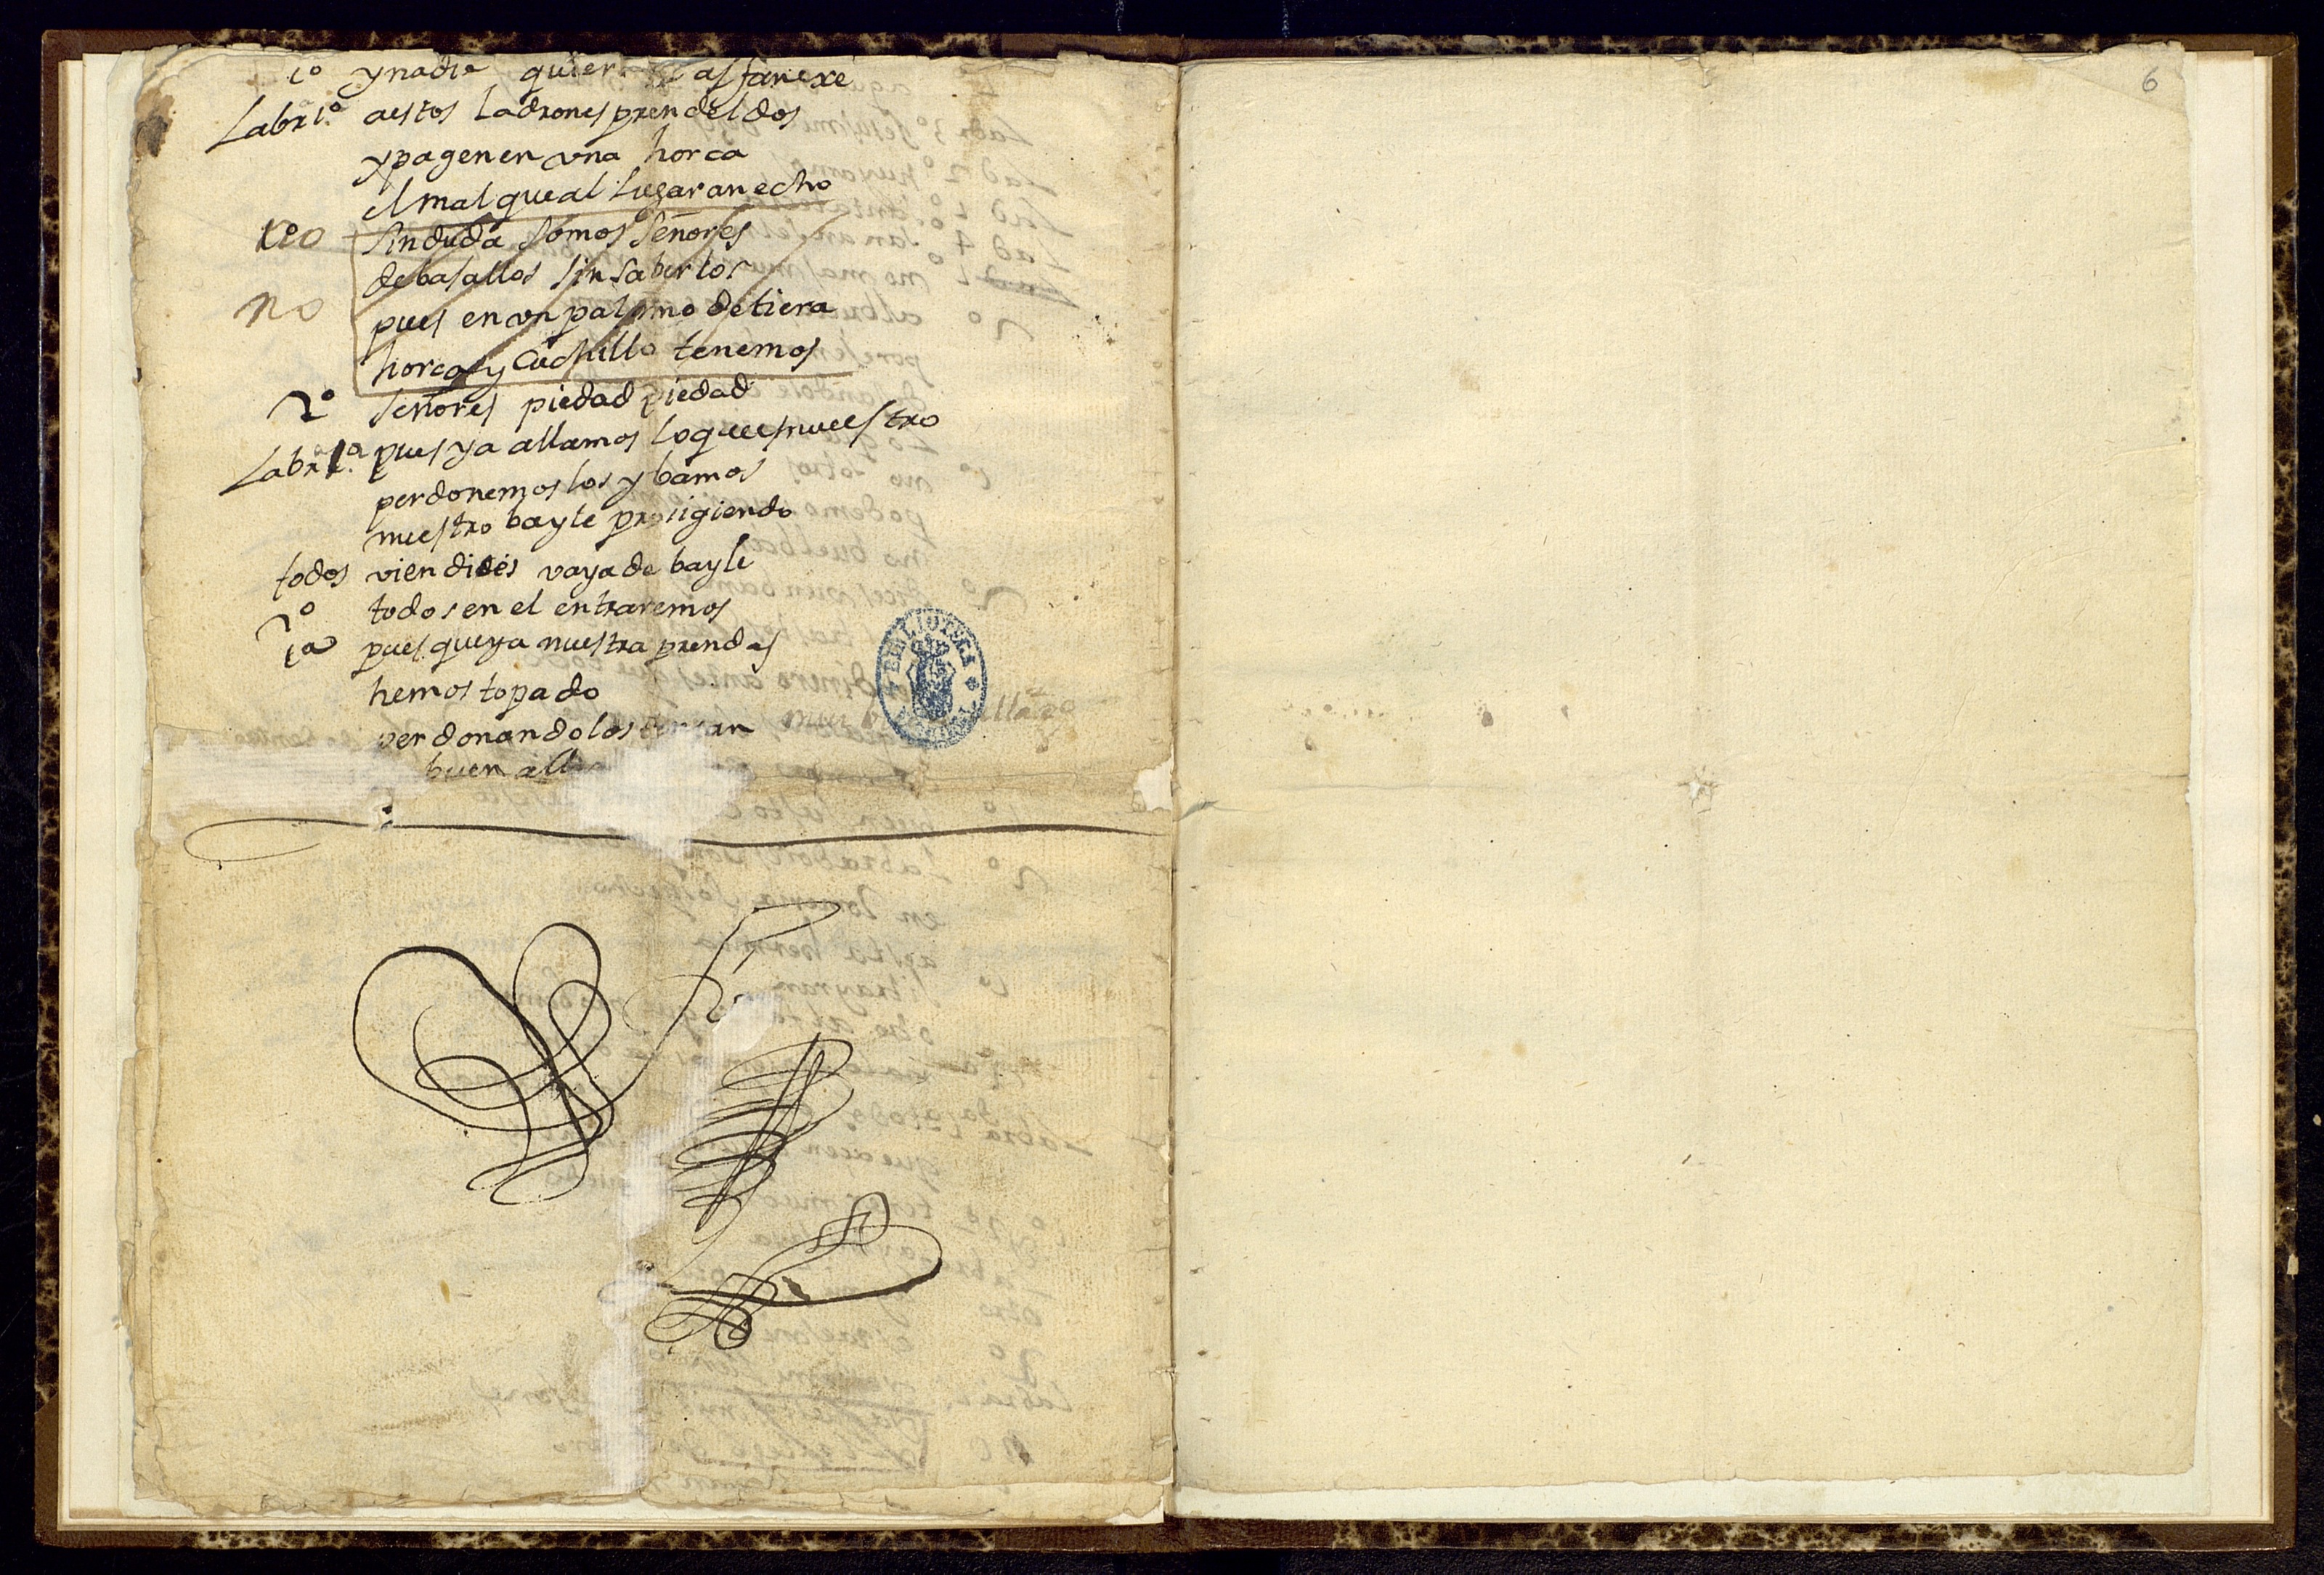 1º y nadie quier as fanexe
Labrº 1º aestos Ladrones prendeldos
y pagen en vna horca
el mal que al Lugar an echo
no Sin duda Somos Señores
de basallos sin saberlos
no pues en vn palmo de tiera
horca y Cuchillo tenemos
2º Señores piedad piedad
Labrª 1ª pues ya allamos lo que es nuestro
perdonemos los y bamos
nuestro bayle prosigiendo
todos vien dices vaya de bayle
2º todos en el entraremos
1ª pues que ya nuestra prendas
hemos topado
perdonandolos
buen
6
BIBLIOTECA